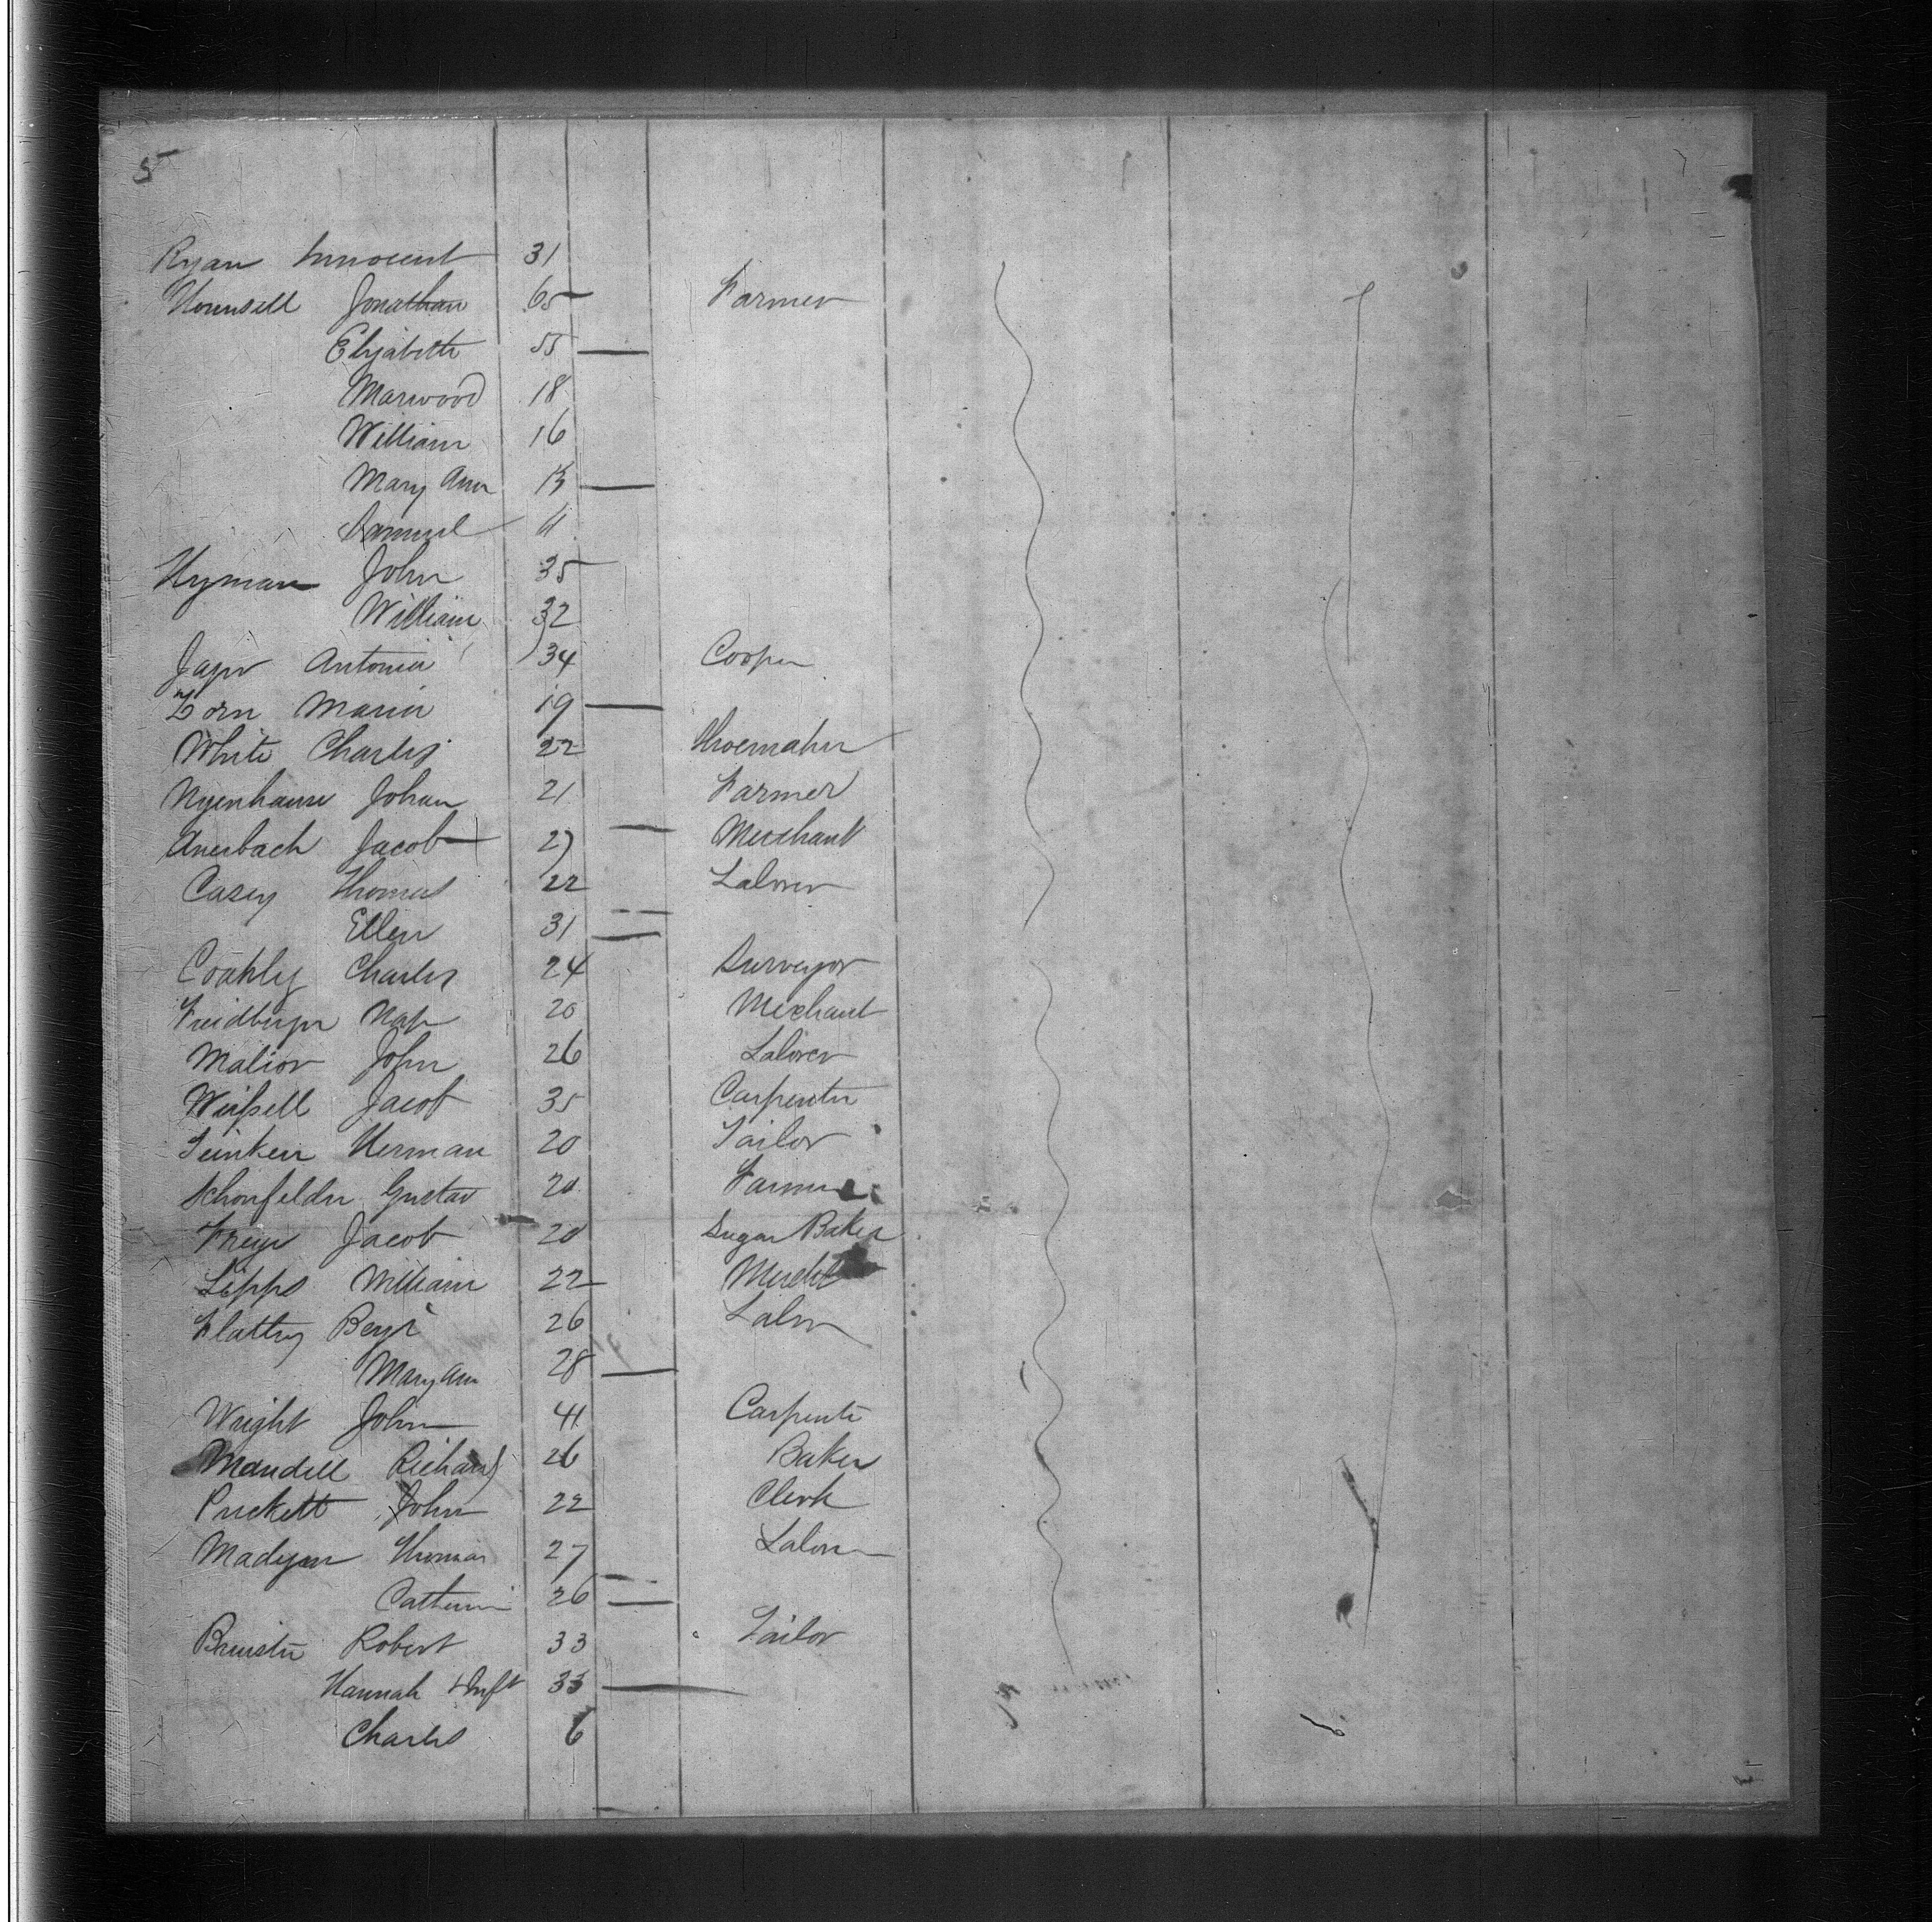 5
Ryan Innocent 31
Hounsell Jonathan 65 Farmer
Elizabeth 55
Marwood 18
William 16
Mary Ann 13
Samuel 11
Hyman John 35
William 32
34 Cooper
Zorn Maria 19
White Charles 22 Shoemaker
Nyenhause Johan 21 Farmer
Auerbach Jacob 27 Merchant
Casey Thomas 22 Laborer
Ellen 31
Coakley Charles 24 Surveyor
20 Merchant
Malior John 26 Laborer
Weissell Jacob 35 Carpenter
Herman 20 Tailor
Schonfelder Gustav 20 Farmer
Freyr Jacob 20 Sugar Baker
Lipps William 22 Mercht
Flattery 26 Labor
Mary Ann 28
Wright John 41 Carpenter
Mandell Richard 26 Baker
Puckett John 22 Clerk
Thomas 27 Laborer
Catherine 26
Brewster Robert 33 Tailor
Hannah & Inft 33
Charles 6